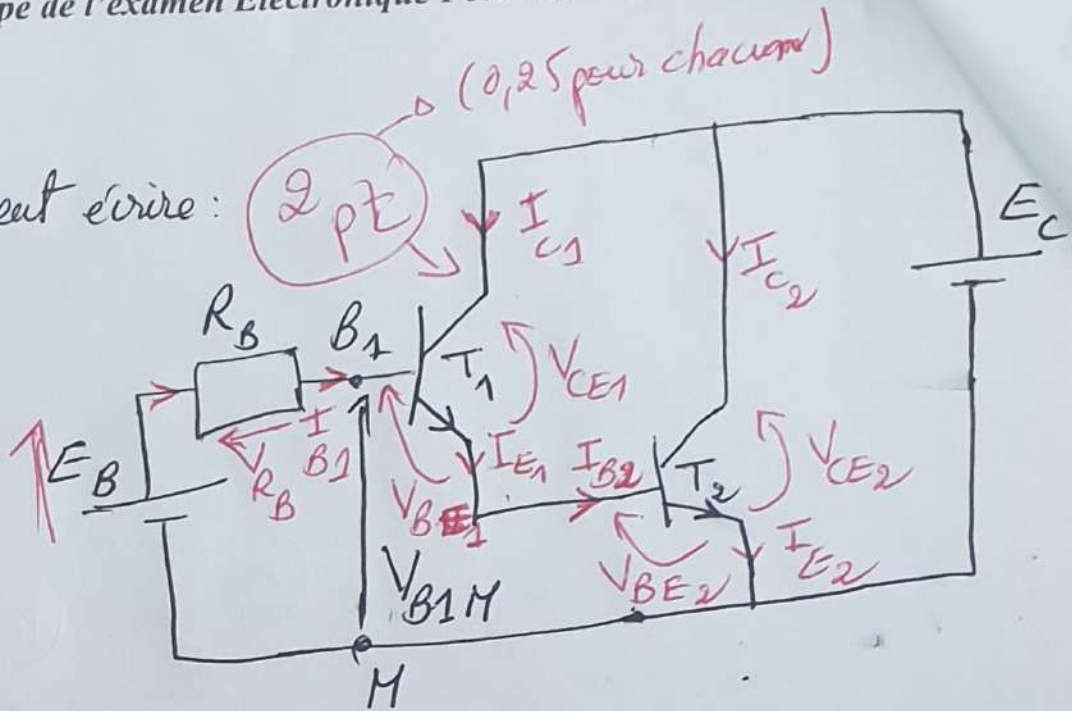 pe de l'examen Electronique
(0,25 pour chacun)
eut écrire :
2 pt
I C1
I C2
E C
R B
B 1
T 1
V CE1
E B
V R B
I B1
V BE1
I E1
I B2
T 2
V CE2
V BE2
I E2
V B1M
M